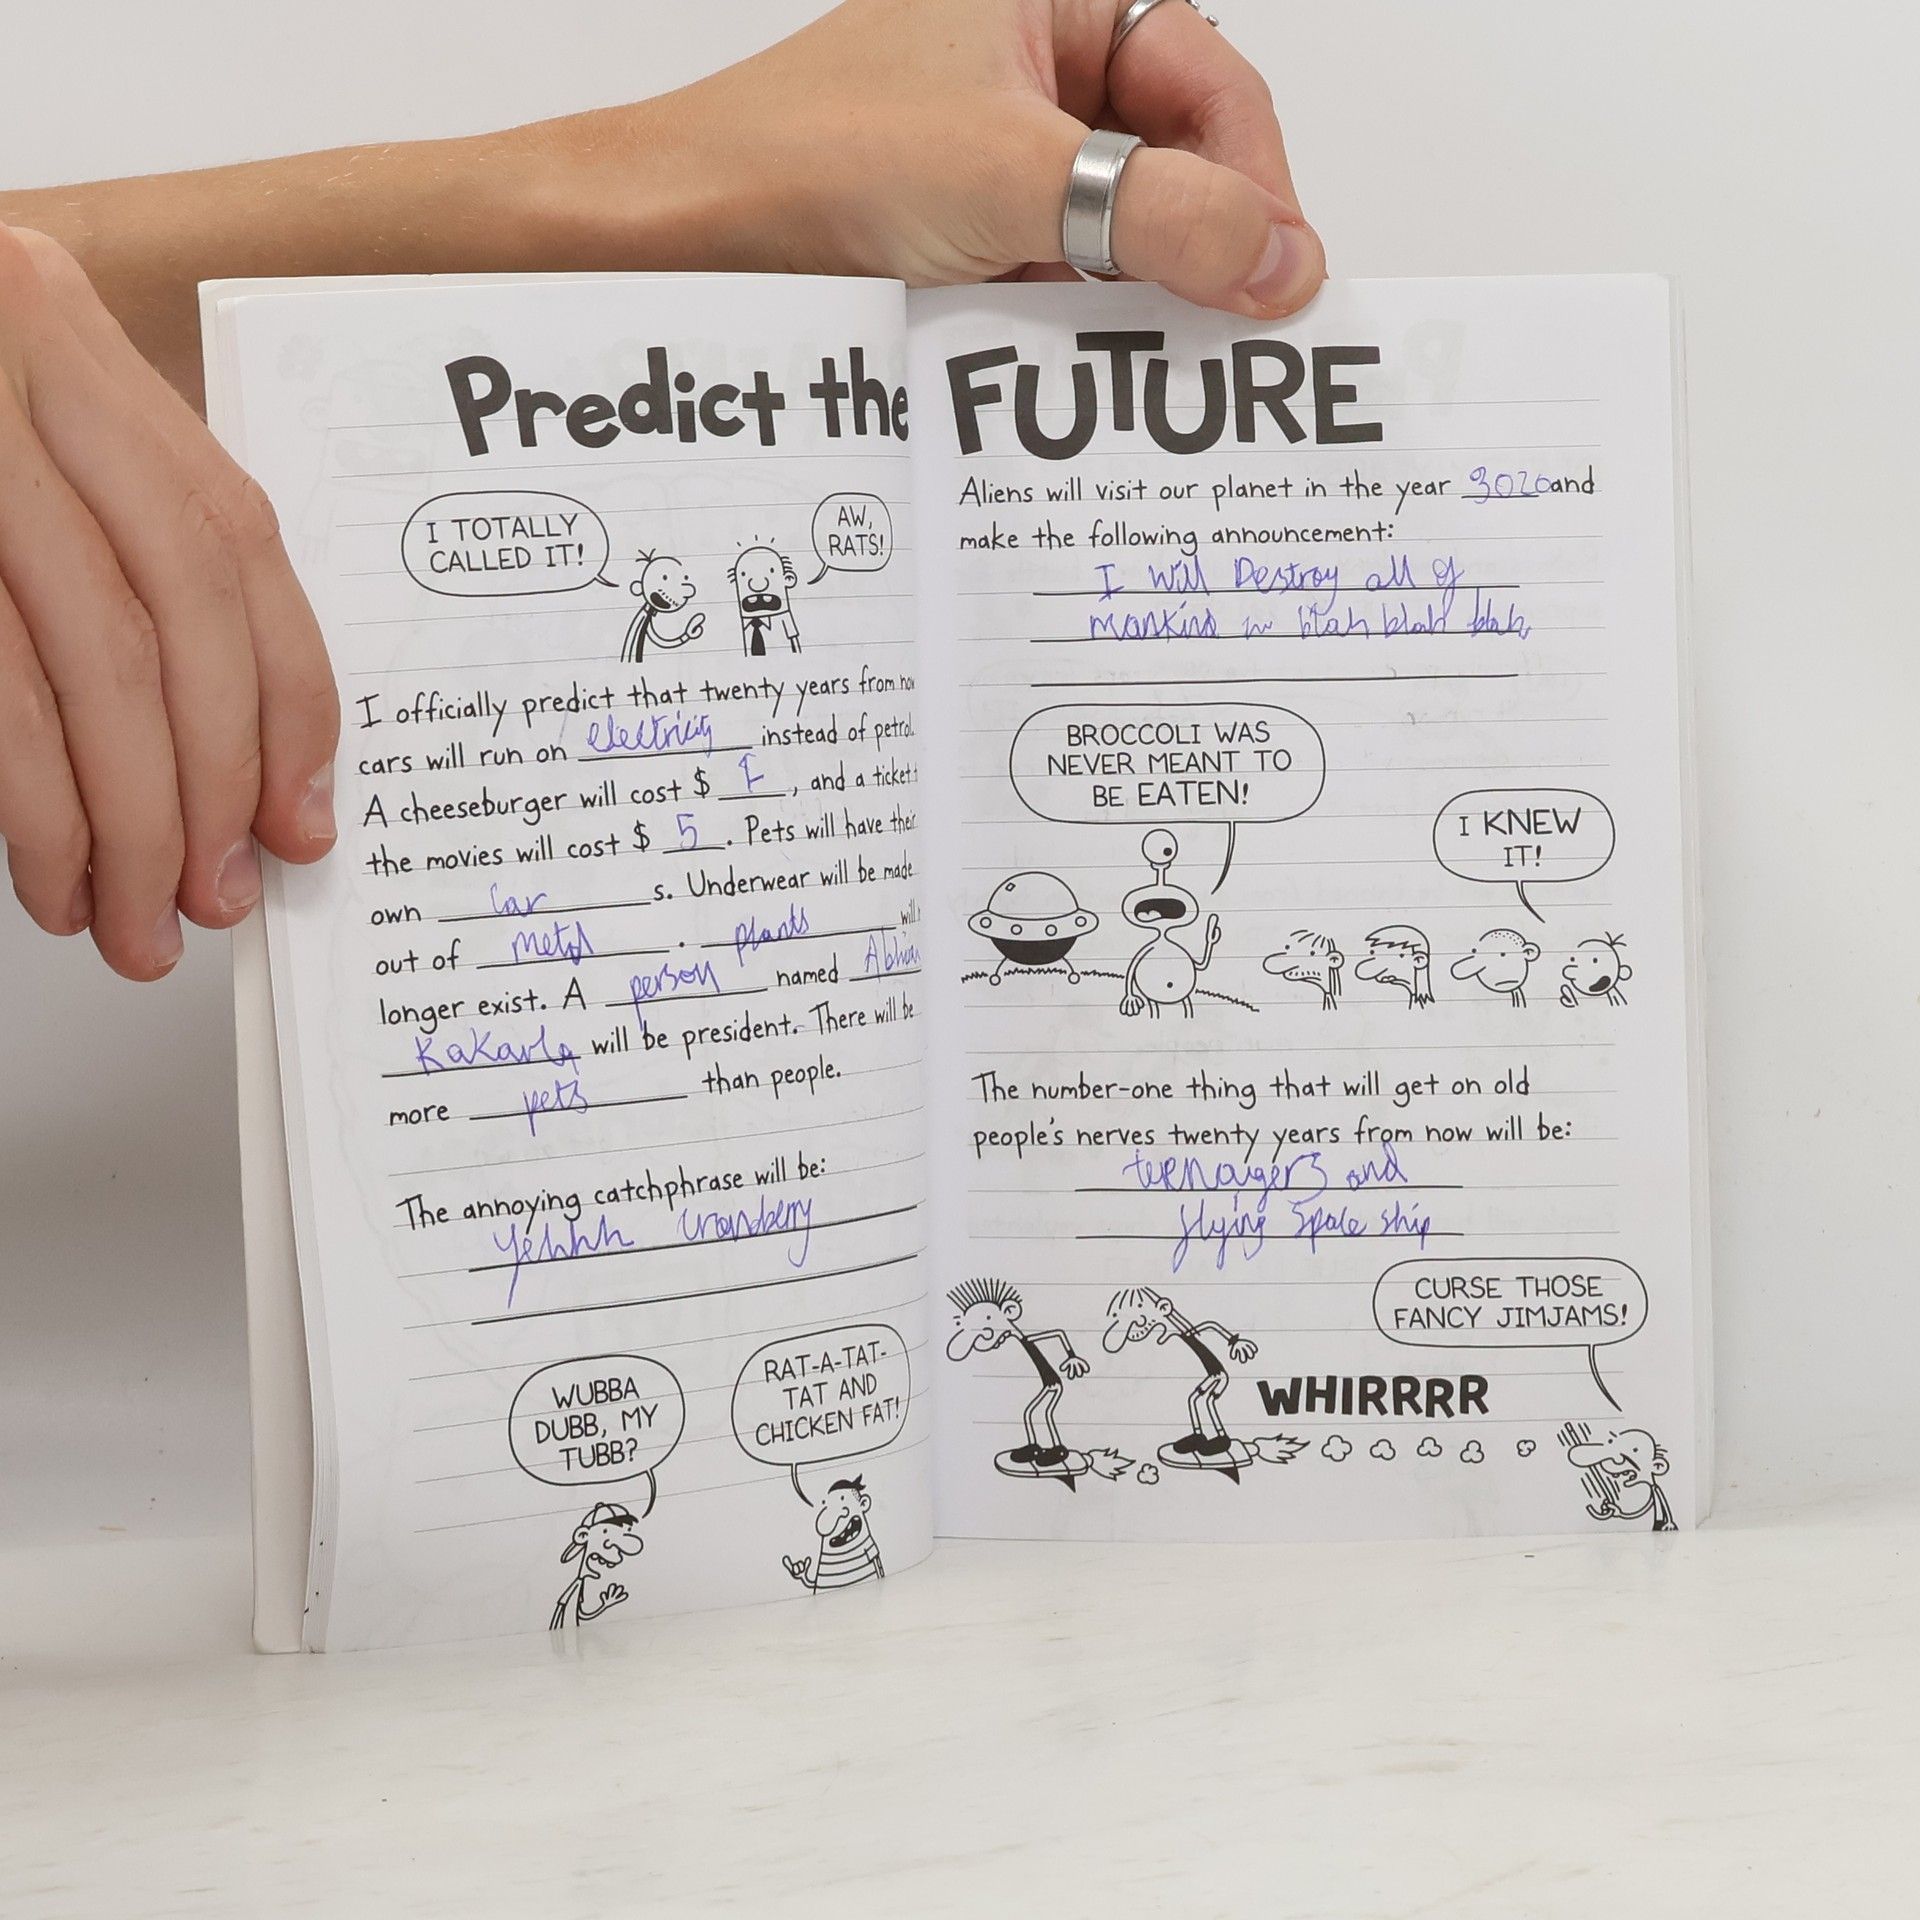 Predict the FUTURE
I TOTALLY
CALLED IT!
AW,
RATS!
I officially predict that twenty years from now
cars will run on electricity instead of petrol.
A cheeseburger will cost $ 1, and a ticket
the movies will cost $ 5. Pets will have their
own car s. Underwear will be made
out of metal. plants will
longer exist. A person named
Kakarla will be president. There will be
more pets than people.
The annoying catchphrase will be:
Yehhh cranberry
WUBBA
DUBB, MY
TUBB?
RAT-A-TAT-
TAT AND
CHICKEN FAT!
Aliens will visit our planet in the year 3020 and
make the following announcement:
I will Destroy all of
mankind blah blah blah
BROCCOLI WAS
NEVER MEANT TO
BE EATEN!
I KNEW
IT!
The number-one thing that will get on old
people's nerves twenty years from now will be:
teenagers and
flying space ship
CURSE THOSE
FANCY JIMJAMS!
WHIRRRR